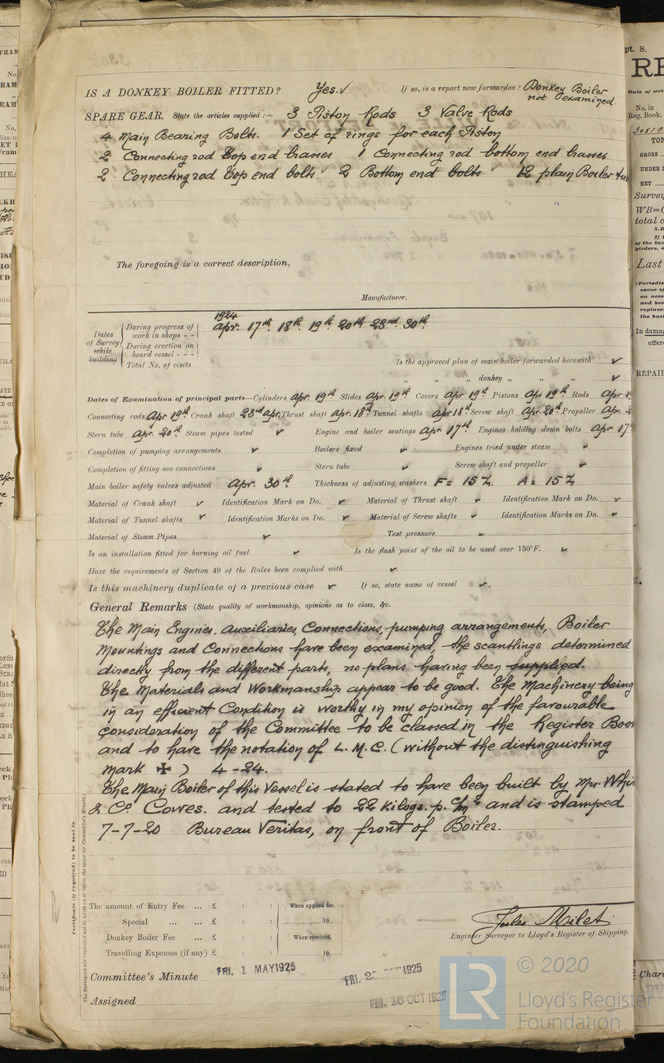 IS A DONKEY BOILER FITTED? Yes. ✓ If so, is a report now forwarded? Donkey Boiler
not examined.
SPARE GEAR. State the articles supplied:— 3 Piston Rods 3 Valve Rods
4 Main Bearing Bolts. 1 Set of rings for each Piston
2 Connecting rod top end brasses 1 Connecting rod bottom end brasses
2 Connecting rod top end bolts 2 Bottom end bolts 12 plain Boiler
The foregoing is a correct description,
Manufacturer.
1924
Dates of Survey while building
During progress of work in shops - - Apr. 17th 18th 19th 20th 23rd 30th
During erection on board vessel - - -
Total No. of visits
Is the approved plan of main boiler forwarded herewith ✓
" " " donkey " " " ✓
Dates of Examination of principal parts—Cylinders Apr. 19th Slides Apr. 19th Covers Apr. 19th Pistons Apr 19th Rods Apr
Connecting rods Apr 19th Crank shaft 23rd Apr. Thrust shaft Apr. 18th Tunnel shafts Apr 18th Screw shaft Apr 20th Propeller Apr.
Stern tube Apr. 20th Steam pipes tested ✓ Engine and boiler seatings Apr 17th Engines holding down bolts Apr 17
Completion of pumping arrangements ✓ Boilers fixed ✓ Engines tried under steam ✓
Completion of fitting sea connections ✓ Stern tube ✓ Screw shaft and propeller ✓
Main boiler safety valves adjusted Apr. 30th Thickness of adjusting washers F = 15 A = 15
Material of Crank shaft ✓ Identification Mark on Do. ✓ Material of Thrust shaft ✓ Identification Mark on Do. ✓
Material of Tunnel shafts ✓ Identification Marks on Do. ✓ Material of Screw shafts ✓ Identification Marks on Do. ✓
Material of Steam Pipes ✓ Test pressure ✓
Is an installation fitted for burning oil fuel ✓ Is the flash point of the oil to be used over 150°F. ✓
Have the requirements of Section 49 of the Rules been complied with ✓
Is this machinery duplicate of a previous case ✓ If so, state name of vessel ✓
General Remarks (State quality of workmanship, opinions as to class, &c.
The Main Engines, Auxiliaries, Connections, pumping arrangements, Boiler
Mountings and Connections have been examined, the scantlings determined
directly from the different parts, no plans having been supplied.
The Materials and Workmanship appear to be good. The Machinery being
in an efficient Condition is worthy in my opinion of the favourable
consideration of the Committee to be classed in the Register Book
and to have the notation of L.M.C. (without the distinguishing
mark ✠) 4-24.
The Main Boiler of this Vessel is stated to have been built by Mrs. Whi
& Co Cowes. and tested to 22 Kilogs. p. cm² and is stamped
7-7-20 Bureau Veritas, on front of Boiler.
Certificate (if required) to be sent to
The amount of Entry Fee ... £ : : When applied for,
Special ... ... £ : : 19
Donkey Boiler Fee ... £ : : When received,
Travelling Expenses (if any) £ : : 19
Jules Milet
Engineer Surveyor to Lloyd's Register of Shipping.
Committee's Minute FRI. 1 MAY 1925
FRI. 16 OCT 1925
Assigned
LR © 2020
Lloyd's Register
Foundation